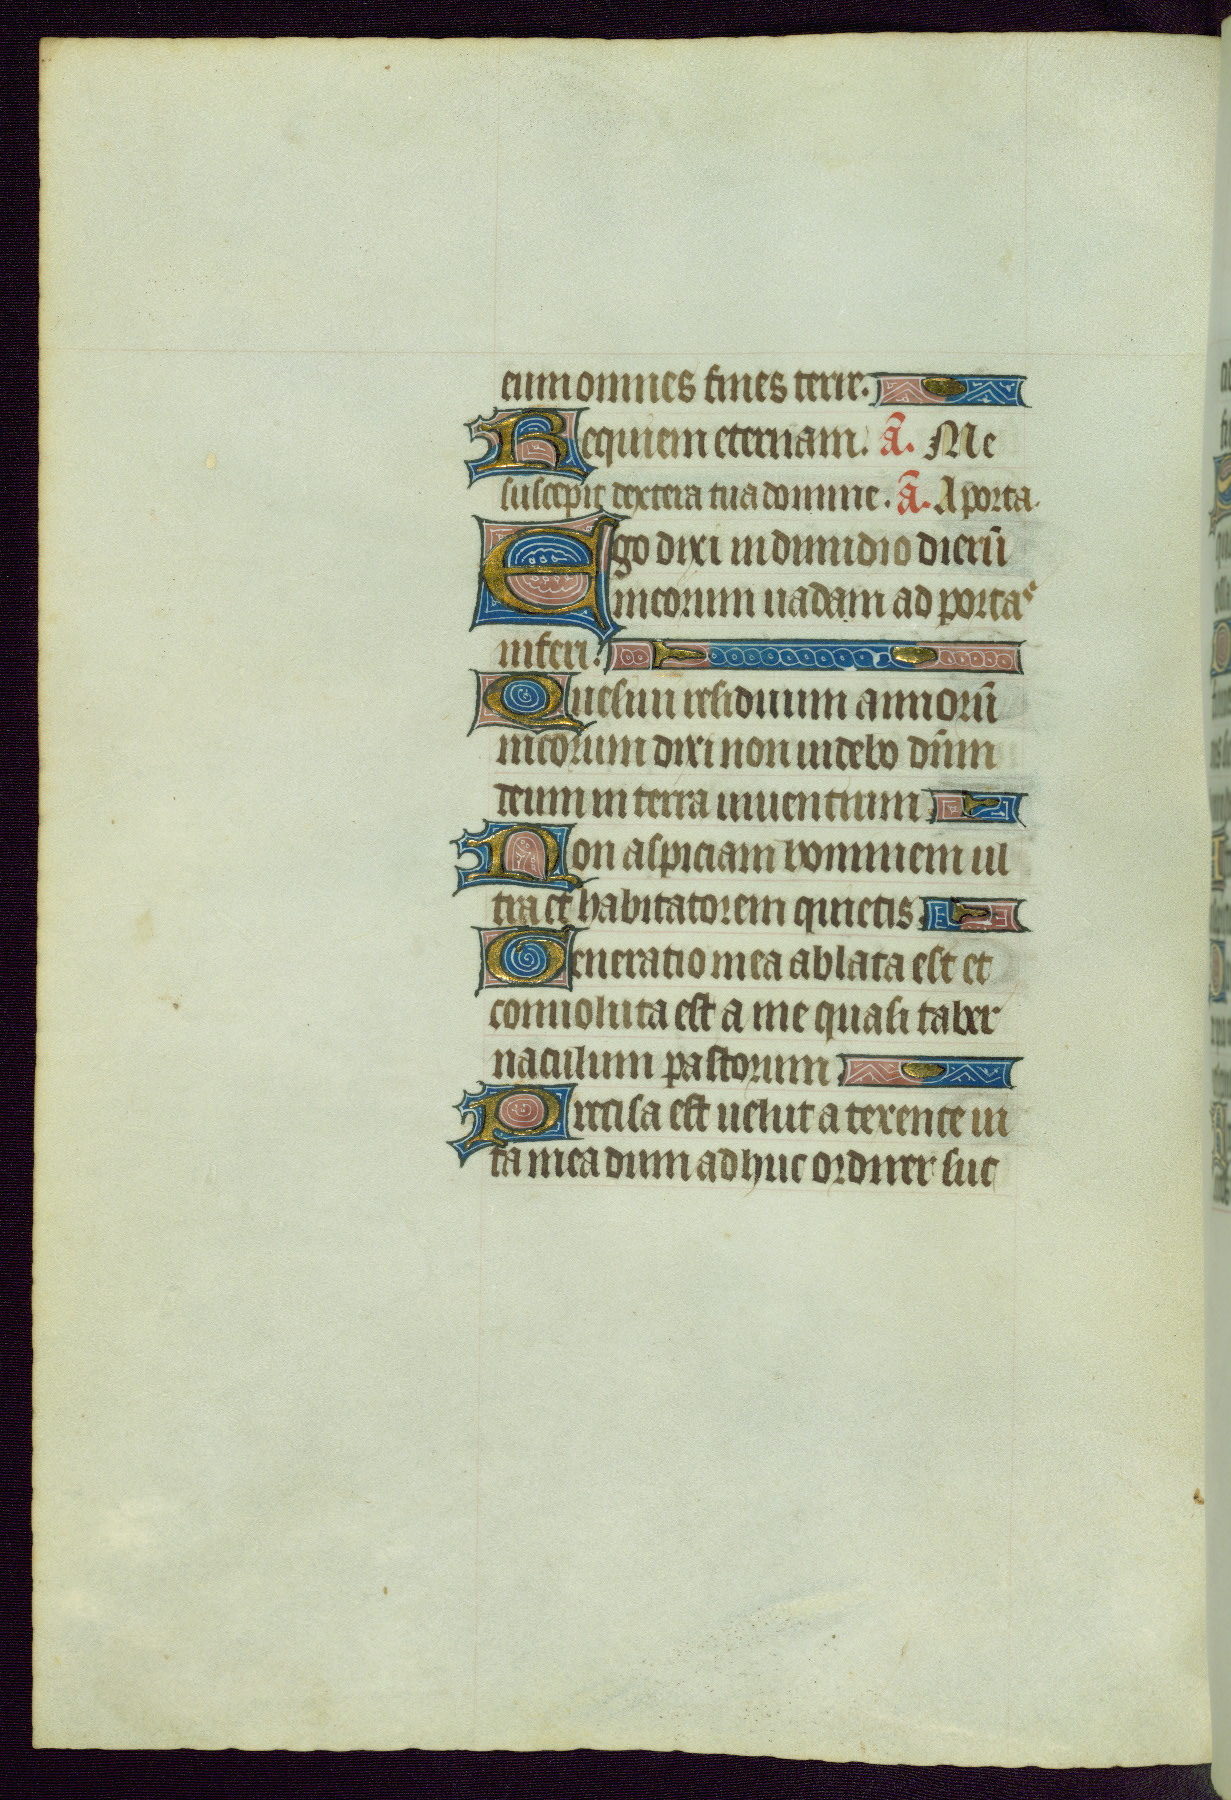 eum omnes fines terre.
Requiem eternam. ā. Me
suscepit dextera tua domine. ā. A porta.
Ego dixi in dimidio dierū
meorum uadam ad portas
inferi.
Quesiui residuum annorū
meorum dixi non uidebo dn̄m
deum in terra uiuentium
Non aspiciam hominem ul
tra et habitatorem quietis
Generatio mea ablata est et
conuoluta est a me quasi taber
naculum pastorum
Precisa est uelut a texente ui
ta mea dum adhuc ordirer suc